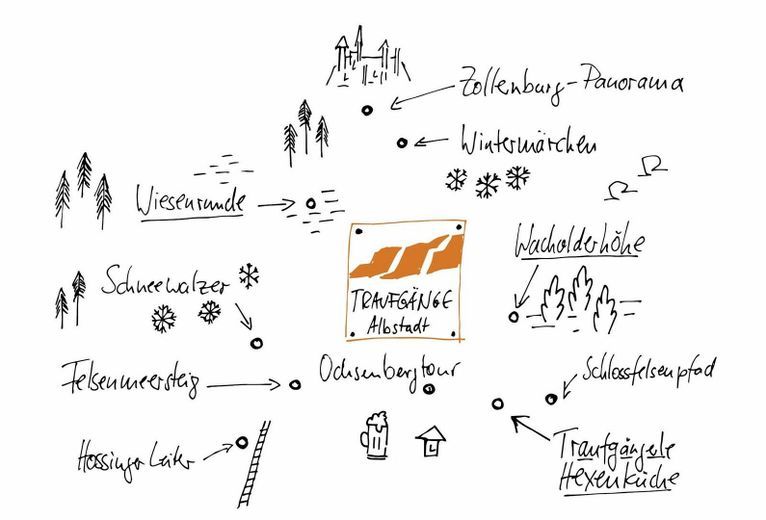 Zollenburg-Panorama
Wintermärchen
Wiesenrunde
Wacholderhöhe
Schneewalzer
TRAUFGÄNGE
Albstadt
Felsenmeersteig
Ochsenbergtour
Schlossfelsenpfad
Hossinger Leiter
Traufgängele
Hexenküche